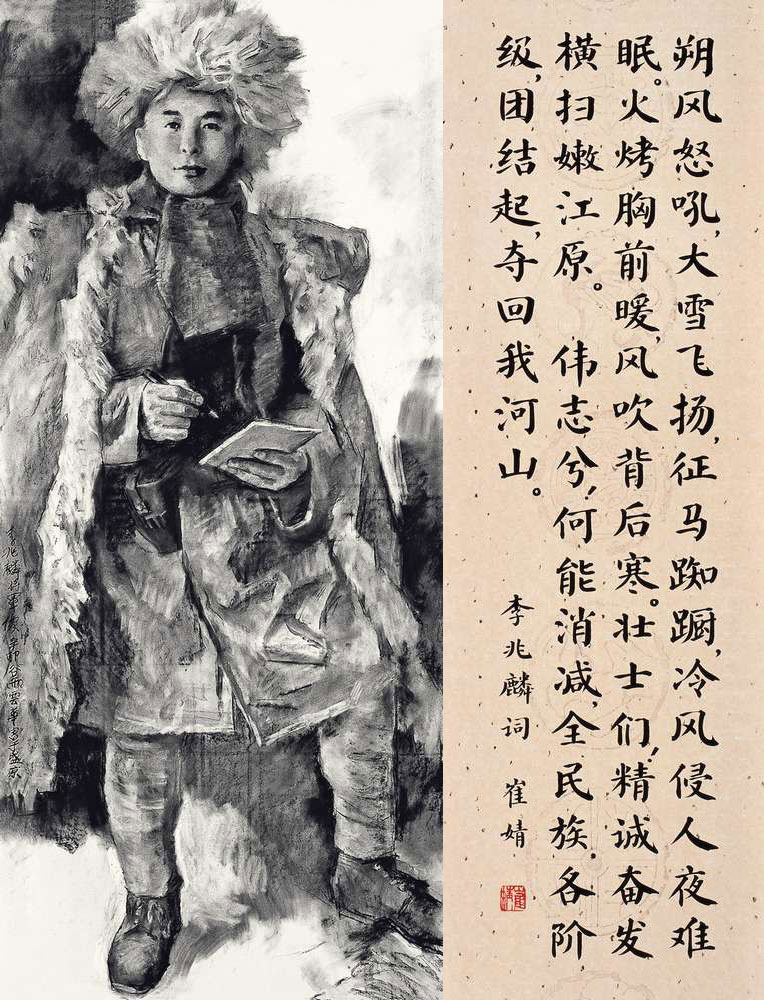 朔风怒吼,大雪飞扬,征马踟蹰,冷风侵人夜难
眠。火烤胸前暖,风吹背后寒。壮士们!精诚奋发
横扫嫩江原。伟志兮!何能消减,全民族,各阶
级,团结起,夺回我河山。
李兆麟词 崔婧
李兆麟将军像辛卯谷雨